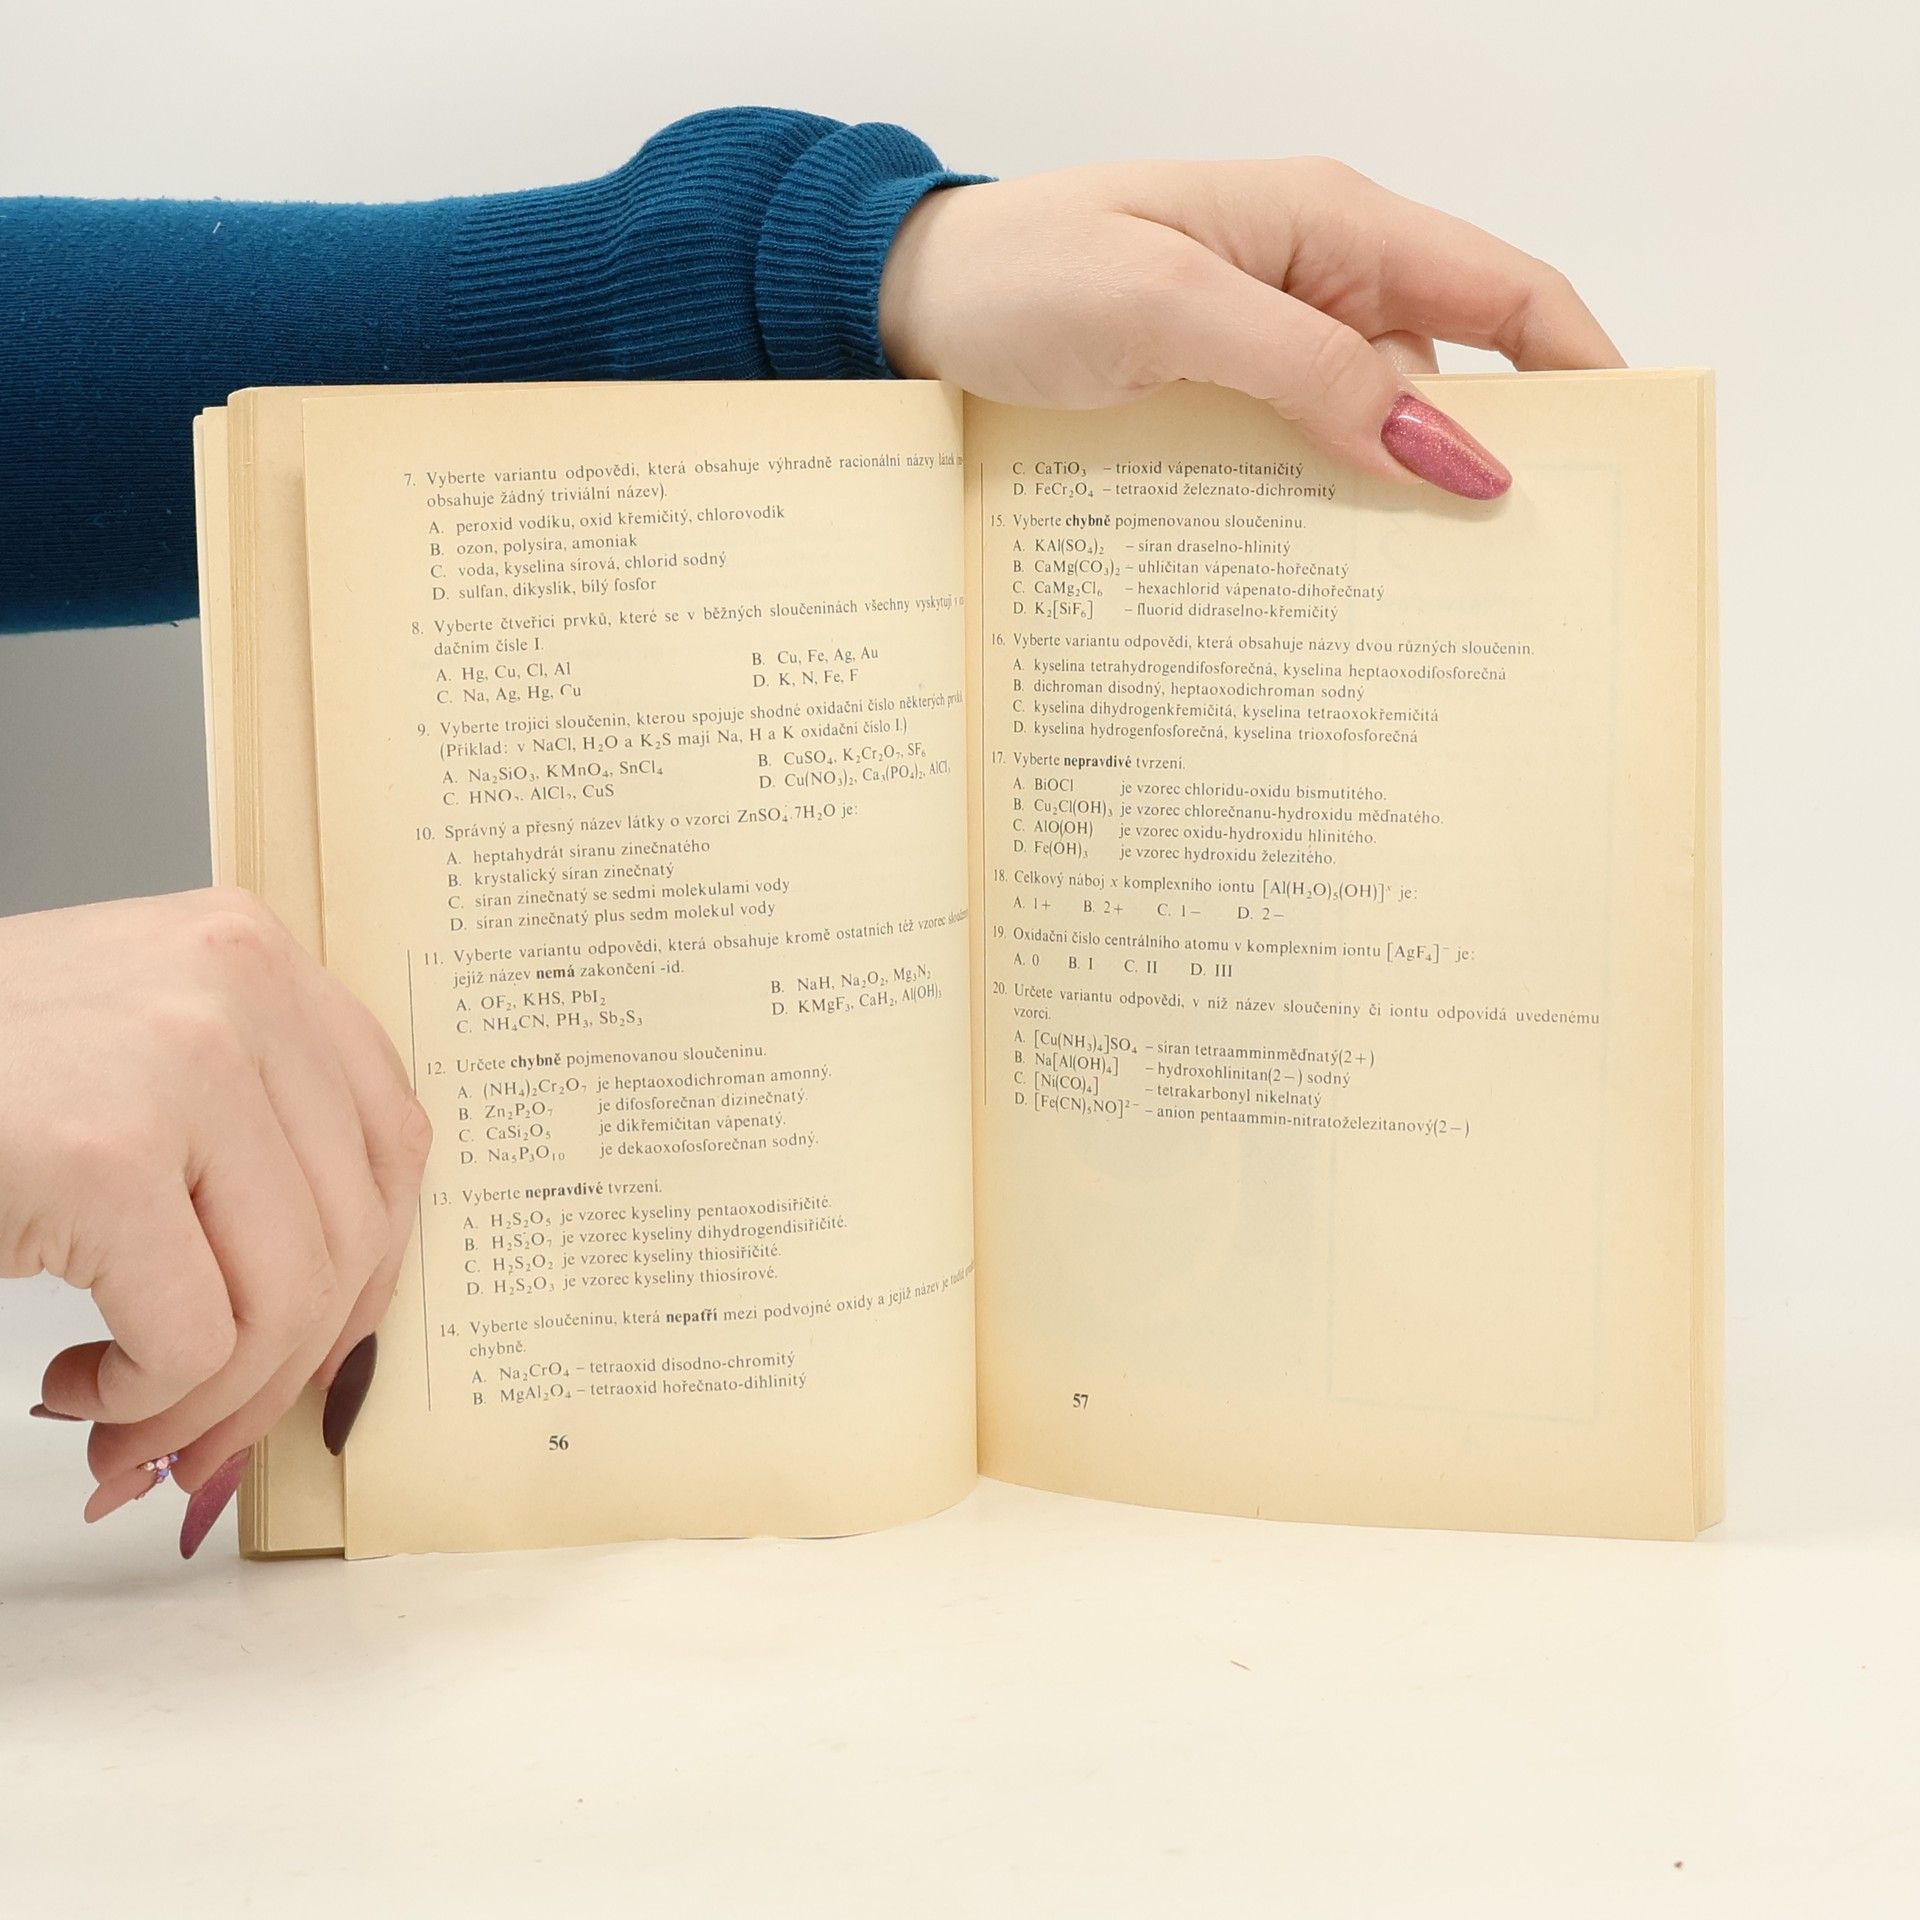 7. Vyberte variantu odpovědi, která obsahuje výhradně racionální názvy látek
obsahuje žádný triviální název).
A. peroxid vodíku, oxid křemičitý, chlorovodík
B. ozon, polysíra, amoniak
C. voda, kyselina sírová, chlorid sodný
D. sulfan, dikyslík, bílý fosfor
8. Vyberte čtveřici prvků, které se v běžných sloučeninách všechny vyskytují v
dačním čísle I.
A. Hg, Cu, Cl, Al B. Cu, Fe, Ag, Au
C. Na, Ag, Hg, Cu D. K, N, Fe, F
9. Vyberte trojici sloučenin, kterou spojuje shodné oxidační číslo některých prvků.
(Příklad: v NaCl, H₂O a K₂S mají Na, H a K oxidační číslo I.)
A. Na₂SiO₃, KMnO₄, SnCl₄ B. CuSO₄, K₂Cr₂O₇, SF₆
C. HNO₃, AlCl₃, CuS D. Cu(NO₃)₂, Ca₃(PO₄)₂, AlCl₃
10. Správný a přesný název látky o vzorci ZnSO₄.7H₂O je:
A. heptahydrát síranu zinečnatého
B. krystalický síran zinečnatý
C. síran zinečnatý se sedmi molekulami vody
D. síran zinečnatý plus sedm molekul vody
11. Vyberte variantu odpovědi, která obsahuje kromě ostatních též vzorec
jejíž název nemá zakončení -id.
A. OF₂, KHS, PbI₂ B. NaH, Na₂O₂, Mg₃N₂
C. NH₄CN, PH₃, Sb₂S₃ D. KMgF₃, CaH₂, Al(OH)₃
12. Určete chybně pojmenovanou sloučeninu.
A. (NH₄)₂Cr₂O₇ je heptaoxodichroman amonný.
B. Zn₂P₂O₇ je difosforečnan dizinečnatý.
C. CaSi₂O₅ je dikřemičitan vápenatý.
D. Na₅P₃O₁₀ je dekaoxofosforečnan sodný.
13. Vyberte nepravdivé tvrzení.
A. H₂S₂O₅ je vzorec kyseliny pentaoxodisiřičité.
B. H₂S₂O₇ je vzorec kyseliny dihydrogendisiřičité.
C. H₂S₂O₂ je vzorec kyseliny thiosiřičité.
D. H₂S₂O₃ je vzorec kyseliny thiosírové.
14. Vyberte sloučeninu, která nepatří mezi podvojné oxidy a jejíž název je tudíž
chybně.
A. Na₂CrO₄ – tetraoxid disodno-chromitý
B. MgAl₂O₄ – tetraoxid hořečnato-dihlinitý
56
C. CaTiO₃ – trioxid vápenato-titaničitý
D. FeCr₂O₄ – tetraoxid železnato-dichromitý
15. Vyberte chybně pojmenovanou sloučeninu.
A. KAl(SO₄)₂ – síran draselno-hlinitý
B. CaMg(CO₃)₂ – uhličitan vápenato-hořečnatý
C. CaMg₂Cl₆ – hexachlorid vápenato-dihořečnatý
D. K₂[SiF₆] – fluorid didraselno-křemičitý
16. Vyberte variantu odpovědi, která obsahuje názvy dvou různých sloučenin.
A. kyselina tetrahydrogendifosforečná, kyselina heptaoxodifosforečná
B. dichroman disodný, heptaoxodichroman sodný
C. kyselina dihydrogenkřemičitá, kyselina tetraoxokřemičitá
D. kyselina hydrogenfosforečná, kyselina trioxofosforečná
17. Vyberte nepravdivé tvrzení.
A. BiOCl je vzorec chloridu-oxidu bismutitého.
B. Cu₂Cl(OH)₃ je vzorec chlorečnanu-hydroxidu měďnatého.
C. AlO(OH) je vzorec oxidu-hydroxidu hlinitého.
D. Fe(OH)₃ je vzorec hydroxidu železitého.
18. Celkový náboj x komplexního iontu [Al(H₂O)₅(OH)]ˣ je:
A. 1+ B. 2+ C. 1− D. 2−
19. Oxidační číslo centrálního atomu v komplexním iontu [AgF₄]⁻ je:
A. 0 B. I C. II D. III
20. Určete variantu odpovědi, v níž název sloučeniny či iontu odpovídá uvedenému
vzorci.
A. [Cu(NH₃)₄]SO₄ – síran tetraamminměďnatý(2+)
B. Na[Al(OH)₄] – hydroxohlinitan(2−) sodný
C. [Ni(CO)₄] – tetrakarbonyl nikelnatý
D. [Fe(CN)₅NO]²⁻ – anion pentaammin-nitratoželezitanový(2−)
57